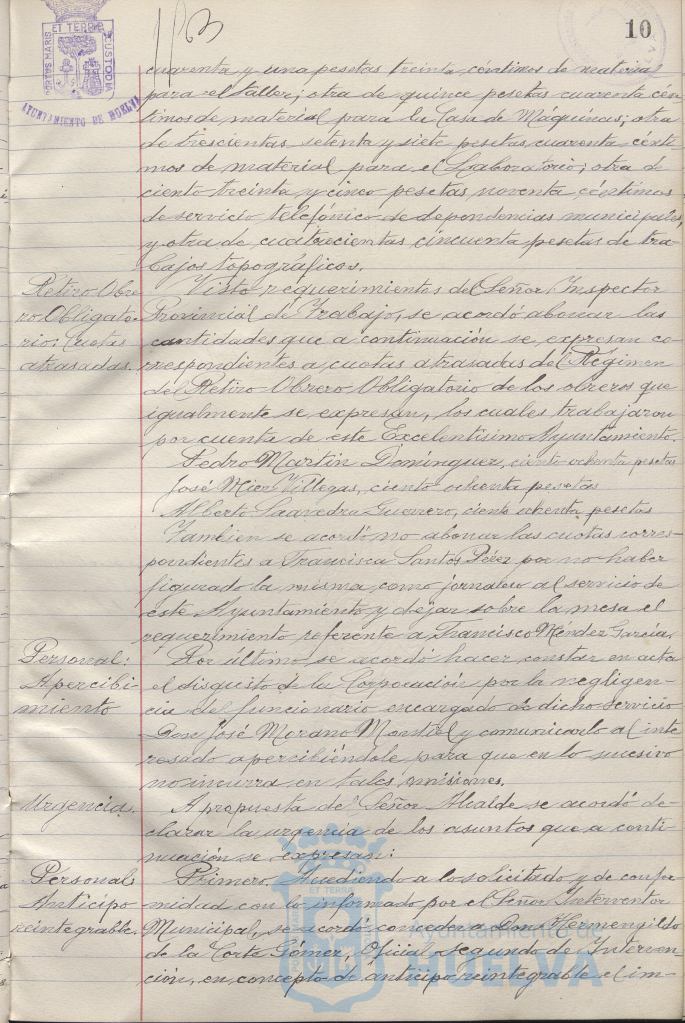 10
PORTUS MARIS ET TERRAE CUSTODIA
AYUNTAMIENTO DE HUELVA
cuarenta y una pesetas treinta céntimos de material
para el taller; otra de quince pesetas cuarenta cén-
timos de material para la Casa de Maquinas; otra
de trescientas setenta y siete pesetas cuarenta cénti-
mos de material para el Laboratorio; otra de
ciento treinta y cinco pesetas noventa céntimos
de servicio telefónico de dependencias municipales,
y otra de cuatrocientas cincuenta pesetas de tra-
bajos topográficos.
Retiro Obre-
ro Obligato-
rio: Cuotas
atrasadas.
Visto requerimientos del Señor Inspector
Provincial de Trabajo, se acordó abonar las
cantidades que a continuación se expresan co-
rrespondientes a cuotas atrasadas del Régimen
del Retiro Obrero Obligatorio de los obreros que
igualmente se expresan, los cuales trabajaron
por cuenta de este Excelentísimo Ayuntamiento.
Pedro Martin Domínguez, ciento ochenta pesetas
José Mier Villegas, ciento ochenta pesetas
Alberto Saavedra Guerrero, ciento ochenta pesetas
Tambien se acordó no abonar las cuotas corres-
pondientes a Francisca Santos Pérez por no haber
figurado la misma como jornalero al servicio de
este Ayuntamiento y dejar sobre la mesa el
requerimiento referente a Francisco Méndez García.
Personal:
Apercibi-
miento
Por último, se acordó hacer constar en acta
el disgusto de la Corporación por la negligen-
cia del funcionario encargado de dicho servicio
Don José Morano Montiel y comunicarlo al inte-
resado apercibiéndole para que en lo sucesivo
no incurra en tales omisiones.
Urgencias.
A propuesta del Señor Alcalde se acordó de-
clarar la urgencia de los asuntos que a conti-
nuación se expresan:
Personal:
Anticipo
reintegrable.
Primero. Accediendo a lo solicitado y de confor-
midad con lo informado por el Señor Interventor
Municipal, se acordó conceder a Don Hermenegildo
de la Corte Gómez, Oficial segundo de Interven-
ción, en concepto de anticipo reintegrable el im-
Ayuntamiento de
HUELVA